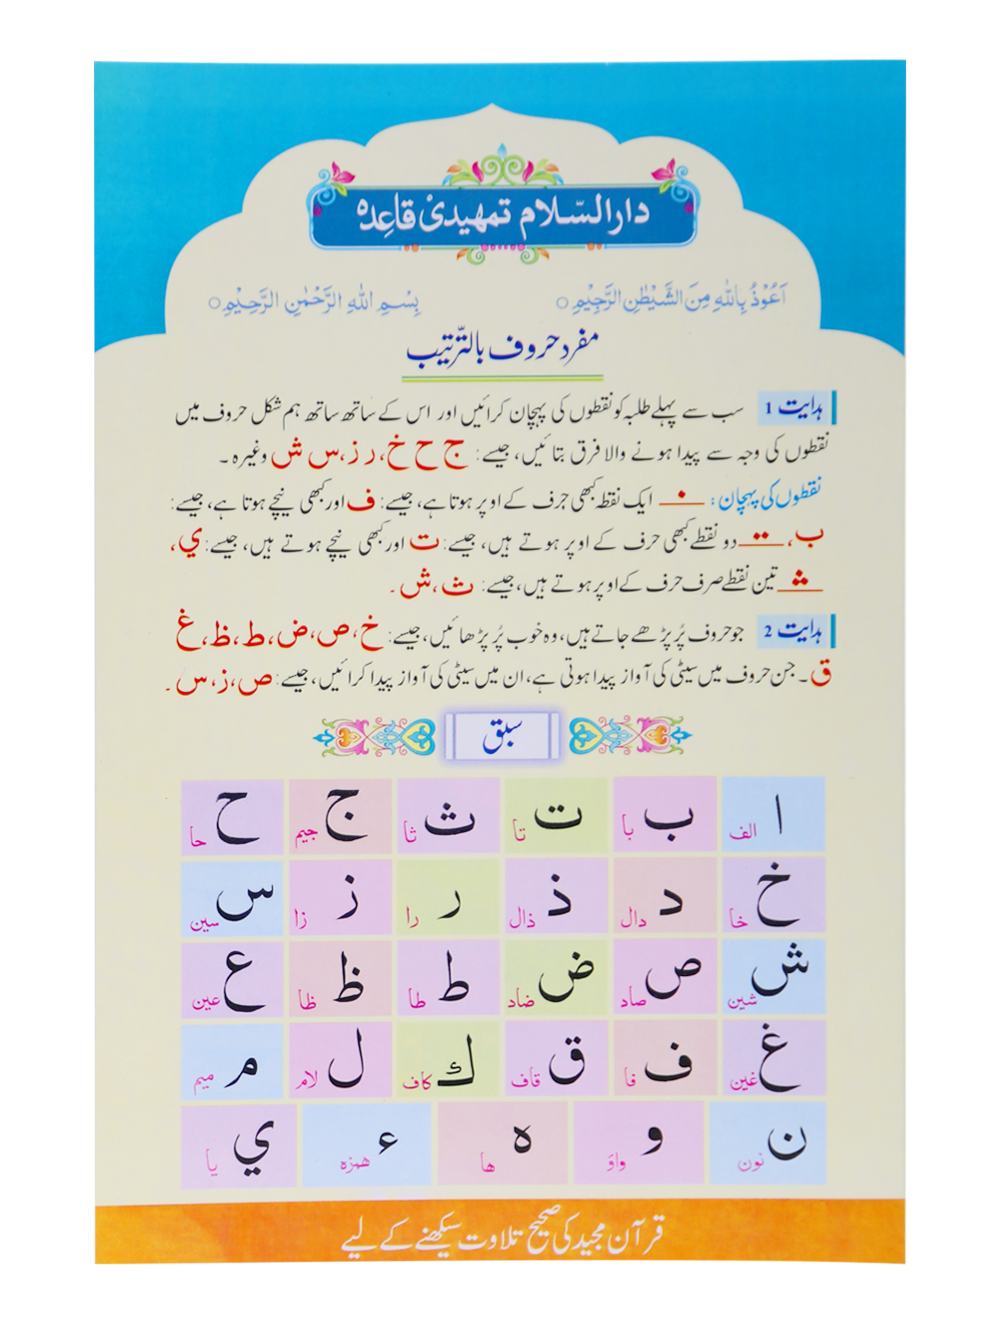 دارالسّلام تمهیدی قاعِدہ
اَعُوْذُ بِاللّٰهِ مِنَ الشَّيْطٰنِ الرَّجِيْمِ ○ بِسْمِ اللّٰهِ الرَّحْمٰنِ الرَّحِيْمِ ○
مفرد حروف بالتّرتیب
ہدایت 1 سب سے پہلے طلبہ کو نقطوں کی پہچان کرائیں اور اس کے ساتھ ساتھ ہم شکل حروف میں
نقطوں کی وجہ سے پیدا ہونے والا فرق بتائیں، جیسے: ج ح خ، ر ز، س ش وغیرہ۔
نقطوں کی پہچان: ایک نقطہ کبھی حرف کے اوپر ہوتا ہے، جیسے: ف اور کبھی نیچے ہوتا ہے، جیسے:
ب، دو نقطے کبھی حرف کے اوپر ہوتے ہیں، جیسے: ت اور کبھی نیچے ہوتے ہیں، جیسے: ي،
تین نقطے صرف حرف کے اوپر ہوتے ہیں، جیسے: ث، ش۔
ہدایت 2 جو حروف پُر پڑھے جاتے ہیں، وہ خوب پُر پڑھائیں، جیسے: خ، ص، ض، ط، ظ، غ
ق۔ جن حروف میں سیٹی کی آواز پیدا ہوتی ہے، ان میں سیٹی کی آواز پیدا کرائیں، جیسے: ص، ز، س۔
سبق
ا الف ب با ت تا ث ثا ج جیم ح حا
خ خا د دال ذ ذال ر را ز زا س سین
ش شین ص صاد ض ضاد ط طا ظ ظا ع عین
غ غین ف فا ق قاف ك كاف ل لام م میم
ن نون و واؤ ہ ھا ء ھمزہ ي یا
قرآن مجید کی صحیح تلاوت سیکھنے کے لیے